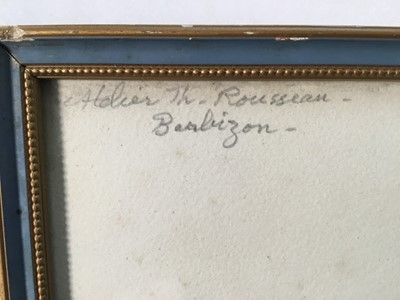 Atelier Th - Rousseau -
Barbizon -